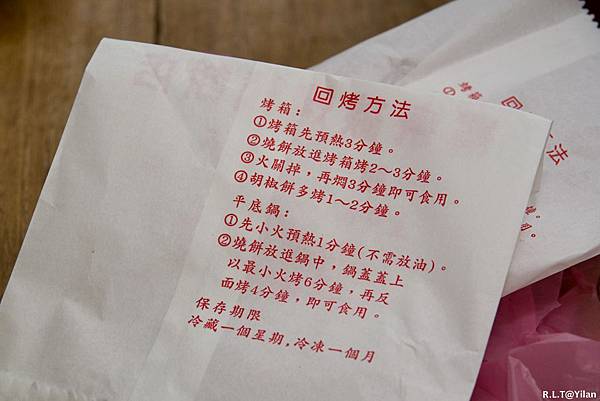 回烤方法
烤箱：
①烤箱先預熱3分鐘。
②燒餅放進烤箱烤2～3分鐘。
③火關掉，再燜3分鐘即可食用。
④胡椒餅多烤1～2分鐘。
平底鍋：
①先小火預熱1分鐘(不需放油)。
②燒餅放進鍋中，鍋蓋蓋上
以最小火烤6分鐘，再反
面烤4分鐘，即可食用。
保存期限
冷藏一個星期，冷凍一個月
回
方法
烤箱
R.L.T@Yilan